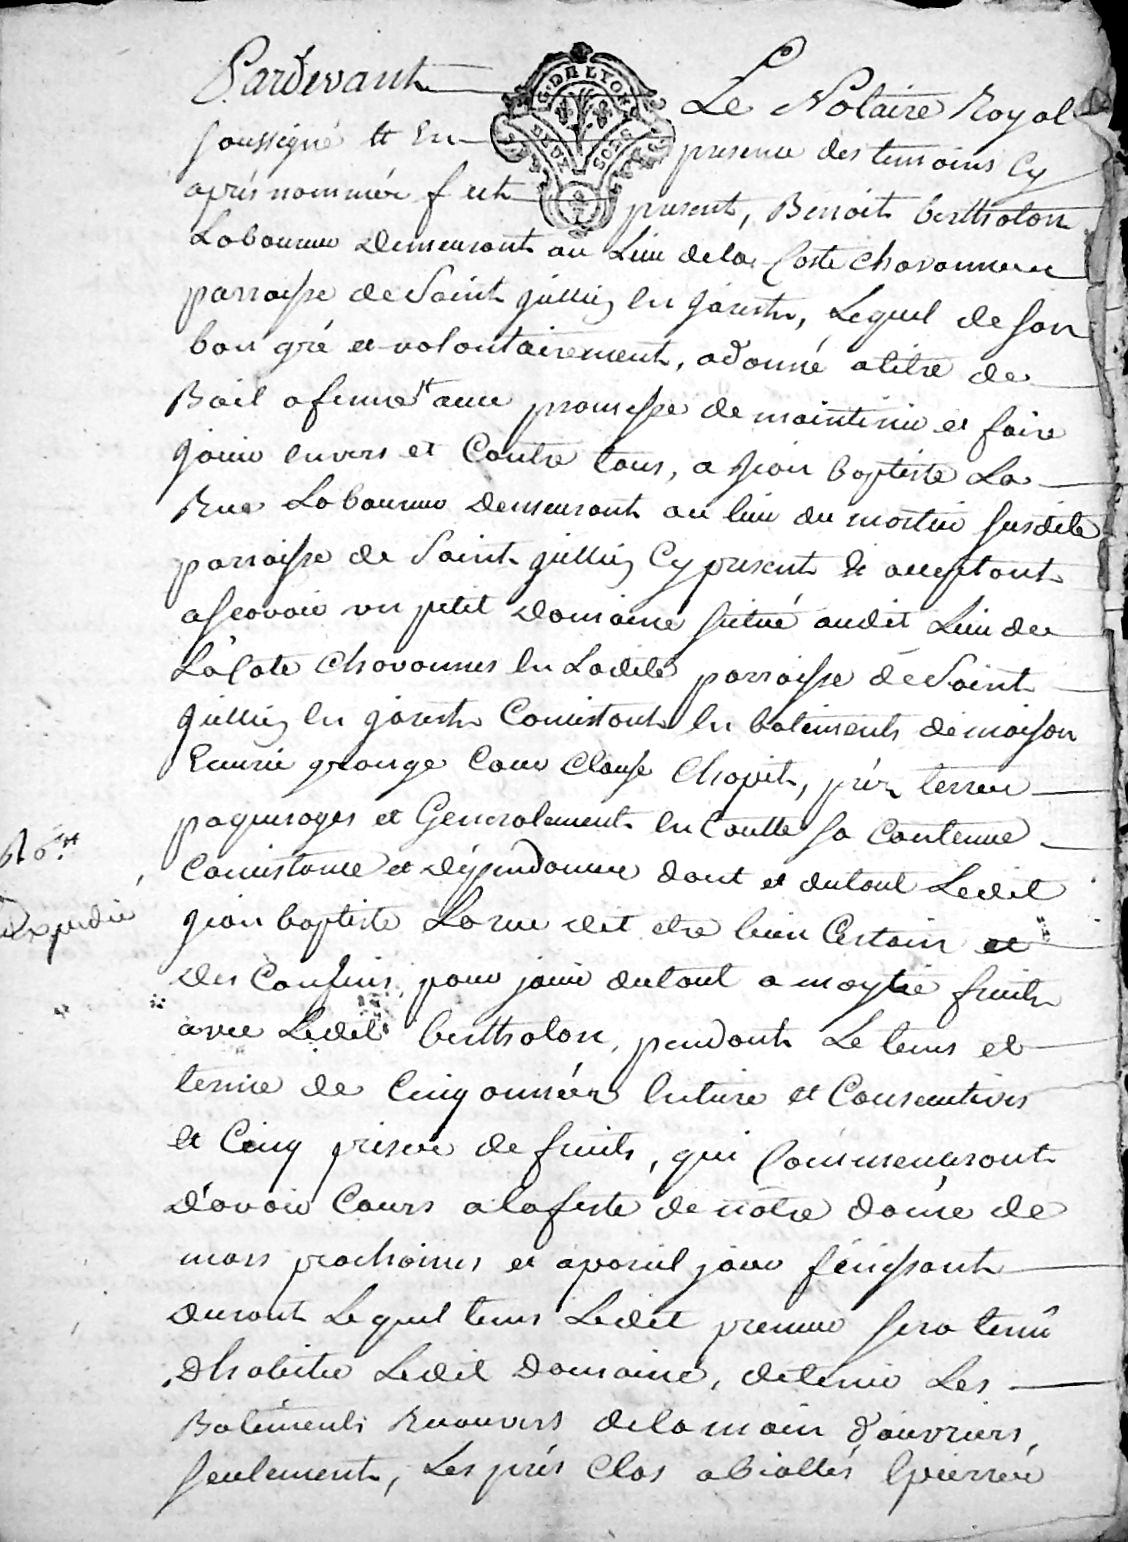 Pardevant Le Notaire Royal
G. DE LYON
DEUX SOLS
soussigné et En presence des temoins Cy
après nommés fut present, Benoit bertholon
Laboureur Demeurant au Lieu dela Coste chavannes
parroisse de Saint jullien en jarest, Lequel de son
bon gré et volontairement, a donné a titre de
Bail a ferme et avec promesse de maintenir et faire
jouir envers et Contre tous, a jean baptiste La
Rue Laboureur Demeurant au lieu du mortier susdite
parroisse de Saint jullien Cy present & acceptant
ascavoir un petit Domaine situé audit Lieu de
La Cote Chavannes en Ladite parroisse de Saint
jullien en jarest Consistant en batiments de maison
Ecurie grange Cour Clause Chapit, prés terres
paquerages et Generalement en toutte sa Contenue
Consistance et dépendance dont et dutout Ledit
jean baptiste Larue dit etre bien Certain et
des Confins, pour jouir dutout a moytié fruits
avec Ledit bertholon, pendant Le tems et
terme de Cinq années entiere et Consecutives
et Cinq prises de fruits, qui Commenceront
d'avoir Cours a la feste de notre dame de
mars prochaines et apareil jour finissant
durant Lequel tems Ledit preneur sera tenu
dhabiter Ledit Domaine, detenir Les
Batiments Recouvers dela main d'ouvriers,
seulement, Les prés Clos abiallés Epierrés
Expedié